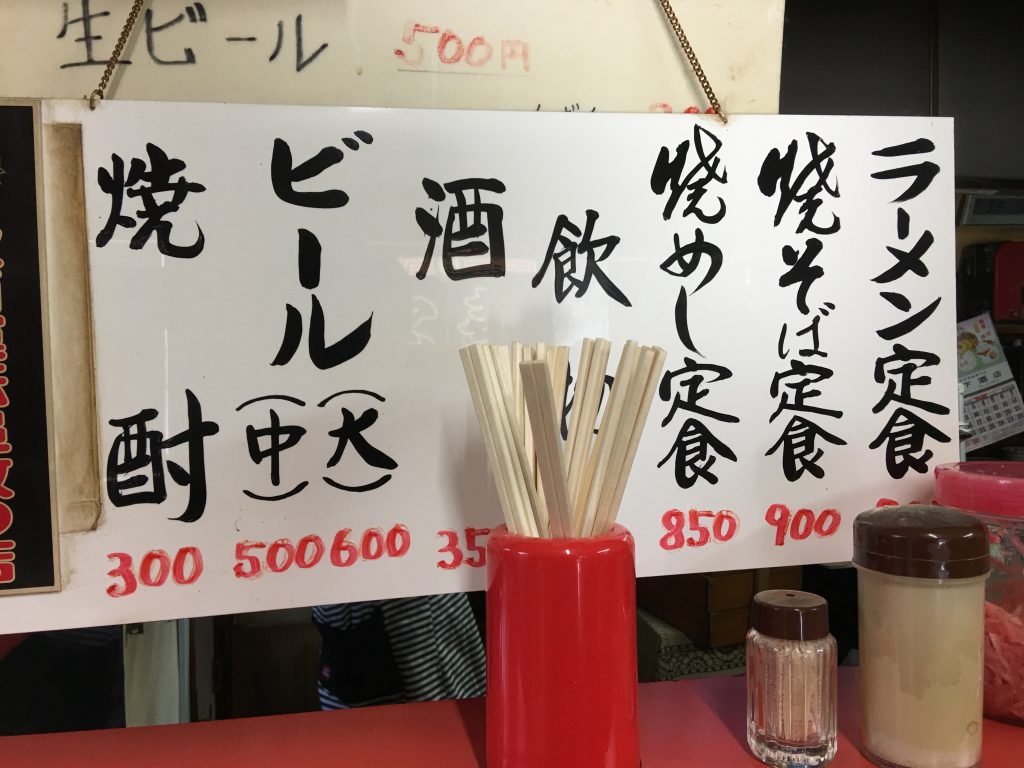 生ビール 500円
ラーメン定食
焼そば定食 900
焼めし定食 850
飲
酒 35
ビール (大) 600
(中) 500
焼酎 300